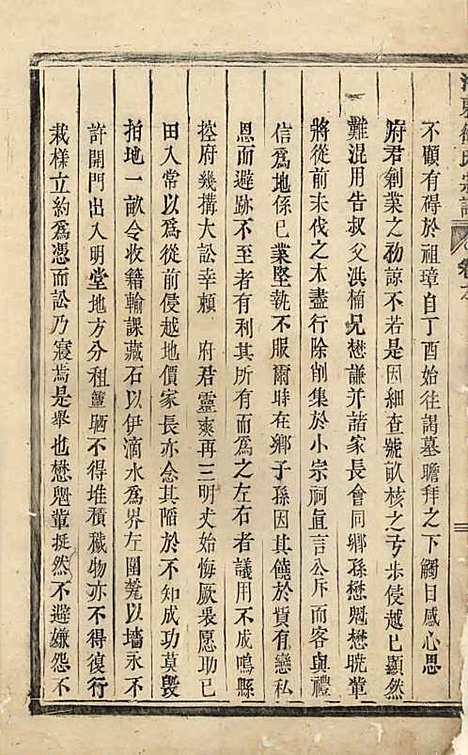 不顧有碍於祖璋自丁酉始往謁墓瞻拜之下觸目感心思
府君創業之初諒不若是因細查號畝核之弓步侵越已顯然
難混用告叔父洪楠兄懋謙并諸家長會同鄉孫懋魁懋晄輩
將從前未伐之木盡行除削集於小宗祠直言公斥而客與禮
信為地係已業堅執不服爾時在鄉子孫因其饒於貲有戀私
恩而避跡不至者有依附而為之左右者議用不成鳴縣
控府幾搆大訟幸頼　府君靈爽再三明丈始悔厥衷愿功
田入常以為從前侵越地價家長亦念其陥於不知成功莫毀
拍地一畝令收籍輸課藏石以伊滴水為界左圍甃以墻永不
許開門出入明堂地方分租簠晒不得堆積穢物亦不得復行
栽樣立約為憑而訟乃寢焉是舉也懋魁輩挺然不避嫌怨不
氏宗譜